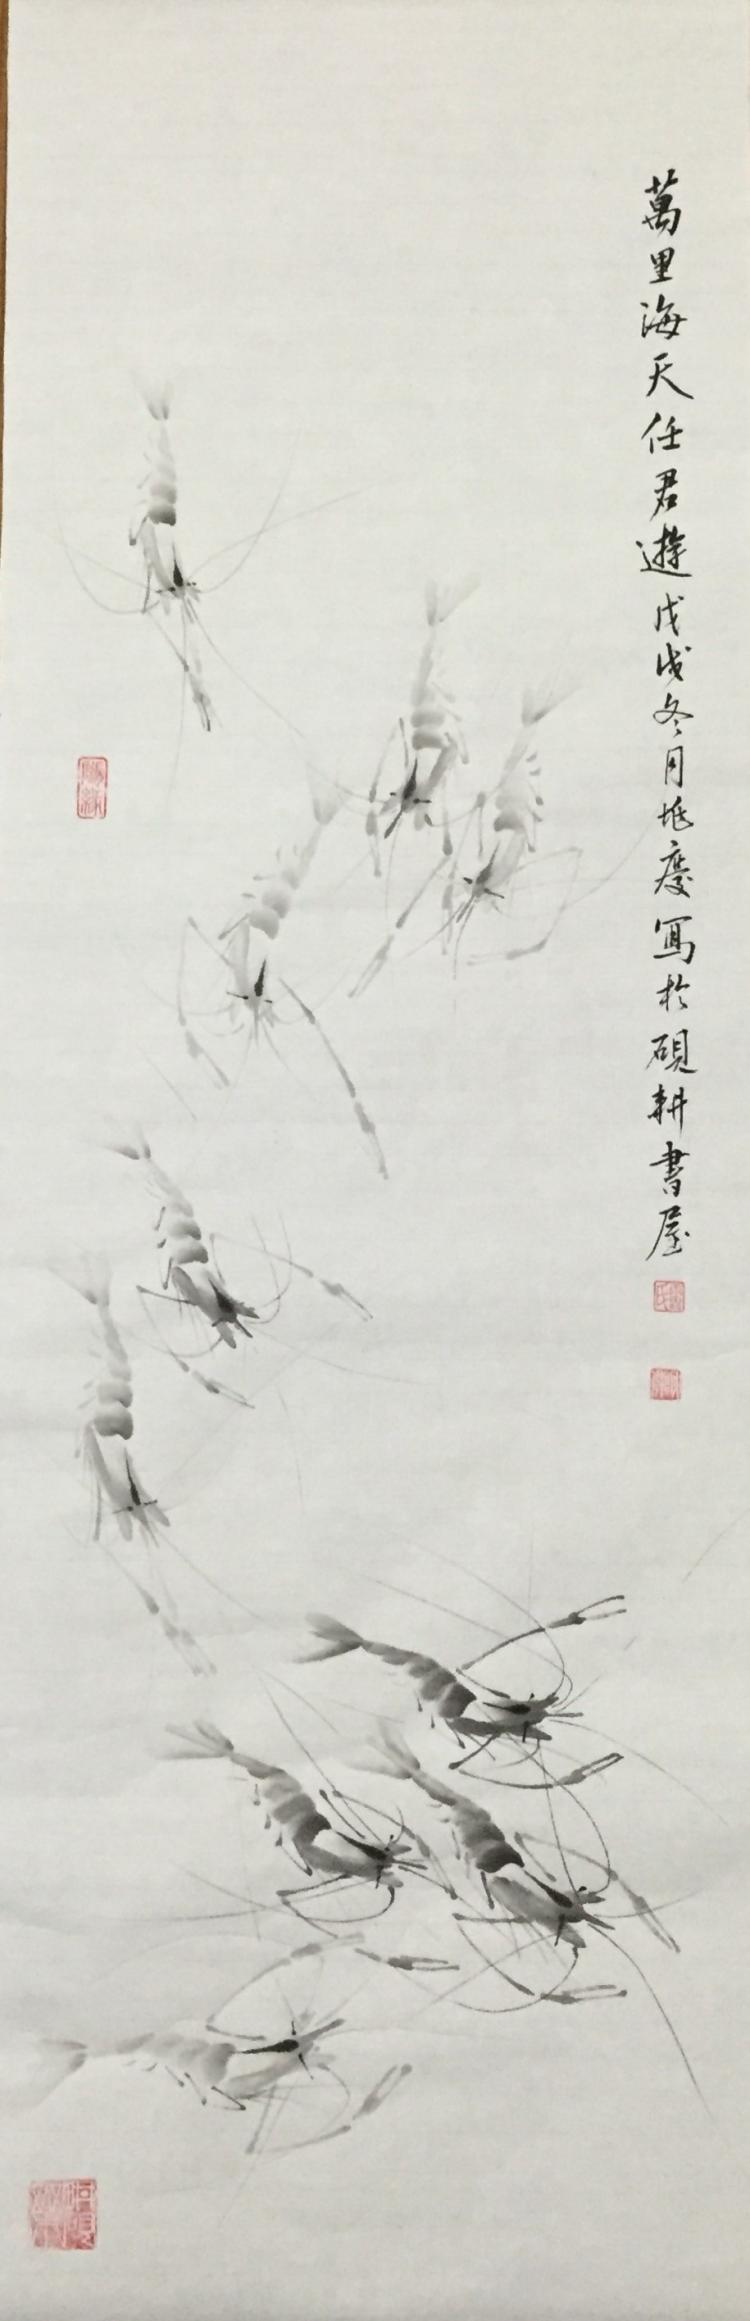 萬里海天任君遊戊戌冬月垗慶寫於硯耕書屋